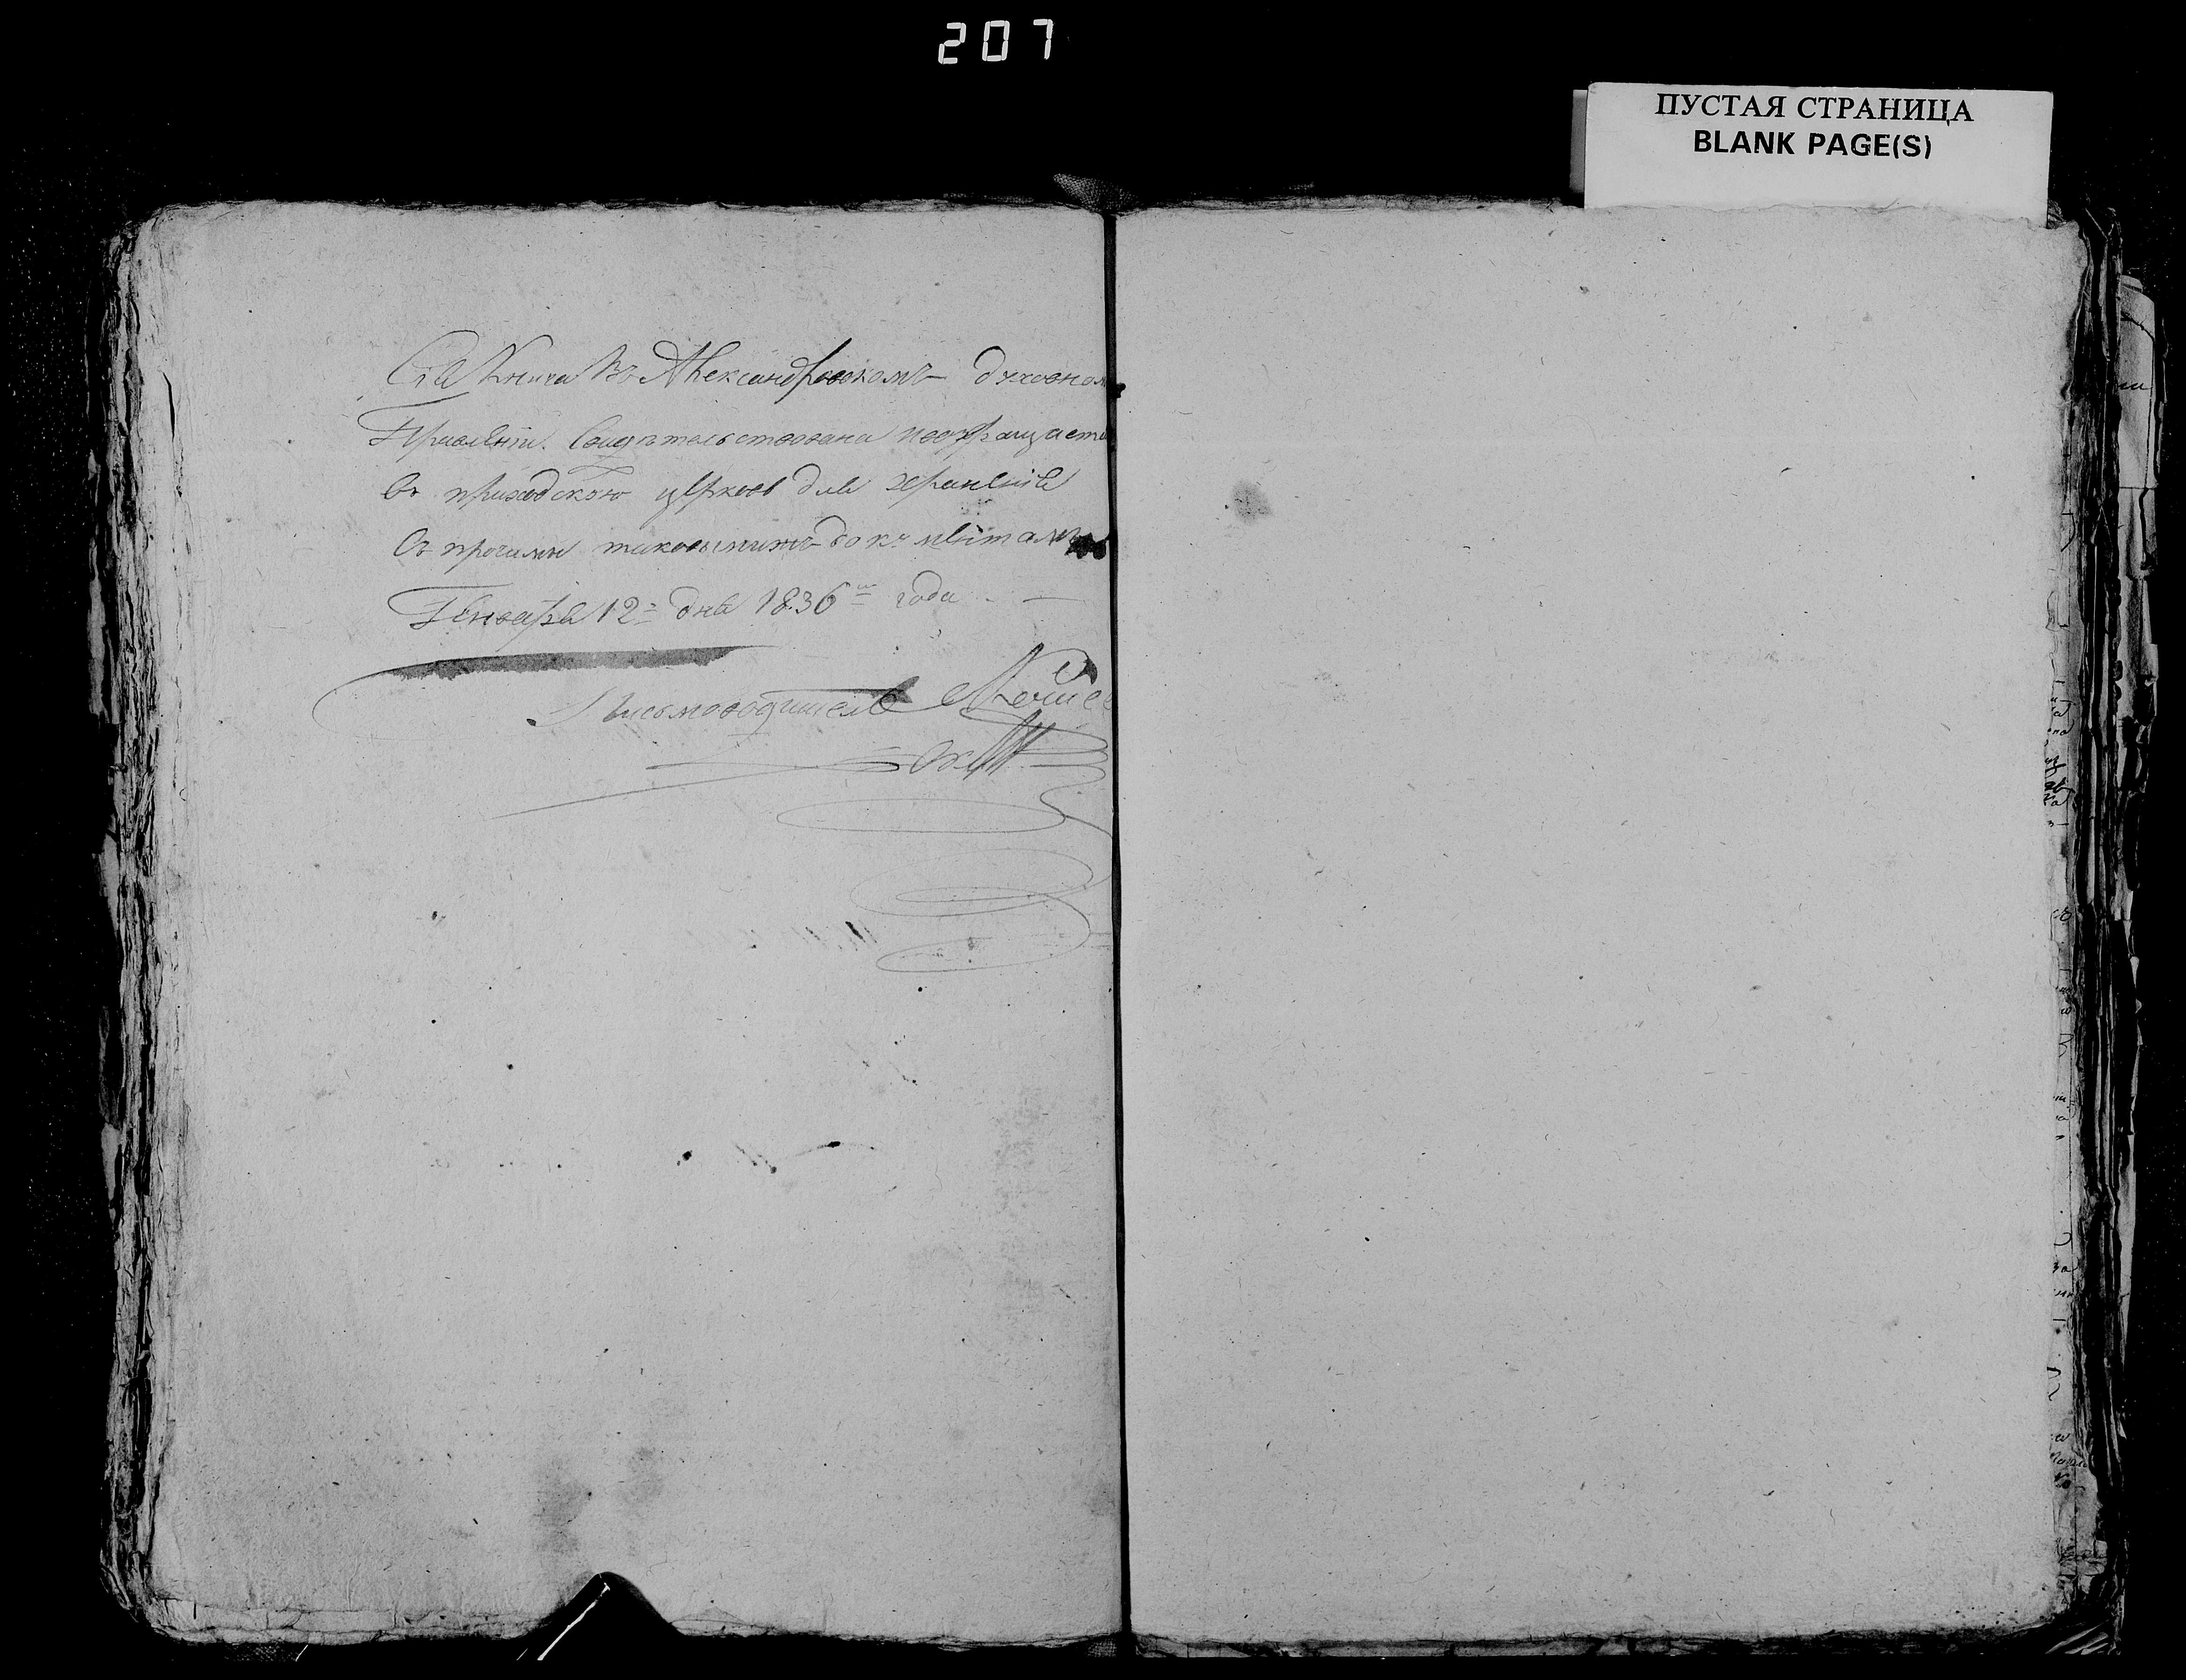 207
ПУСТАЯ СТРАНИЦА
BLANK PAGE(S)
Сiя Книга Въ Александровскомъ духовном
Правленiи Свидетельствована и возвращаетс
въ приходскою церковь для храненiя
Съ прочими таковымижъ документами
Генваря 12 дня 1836 года
Письмоводитель